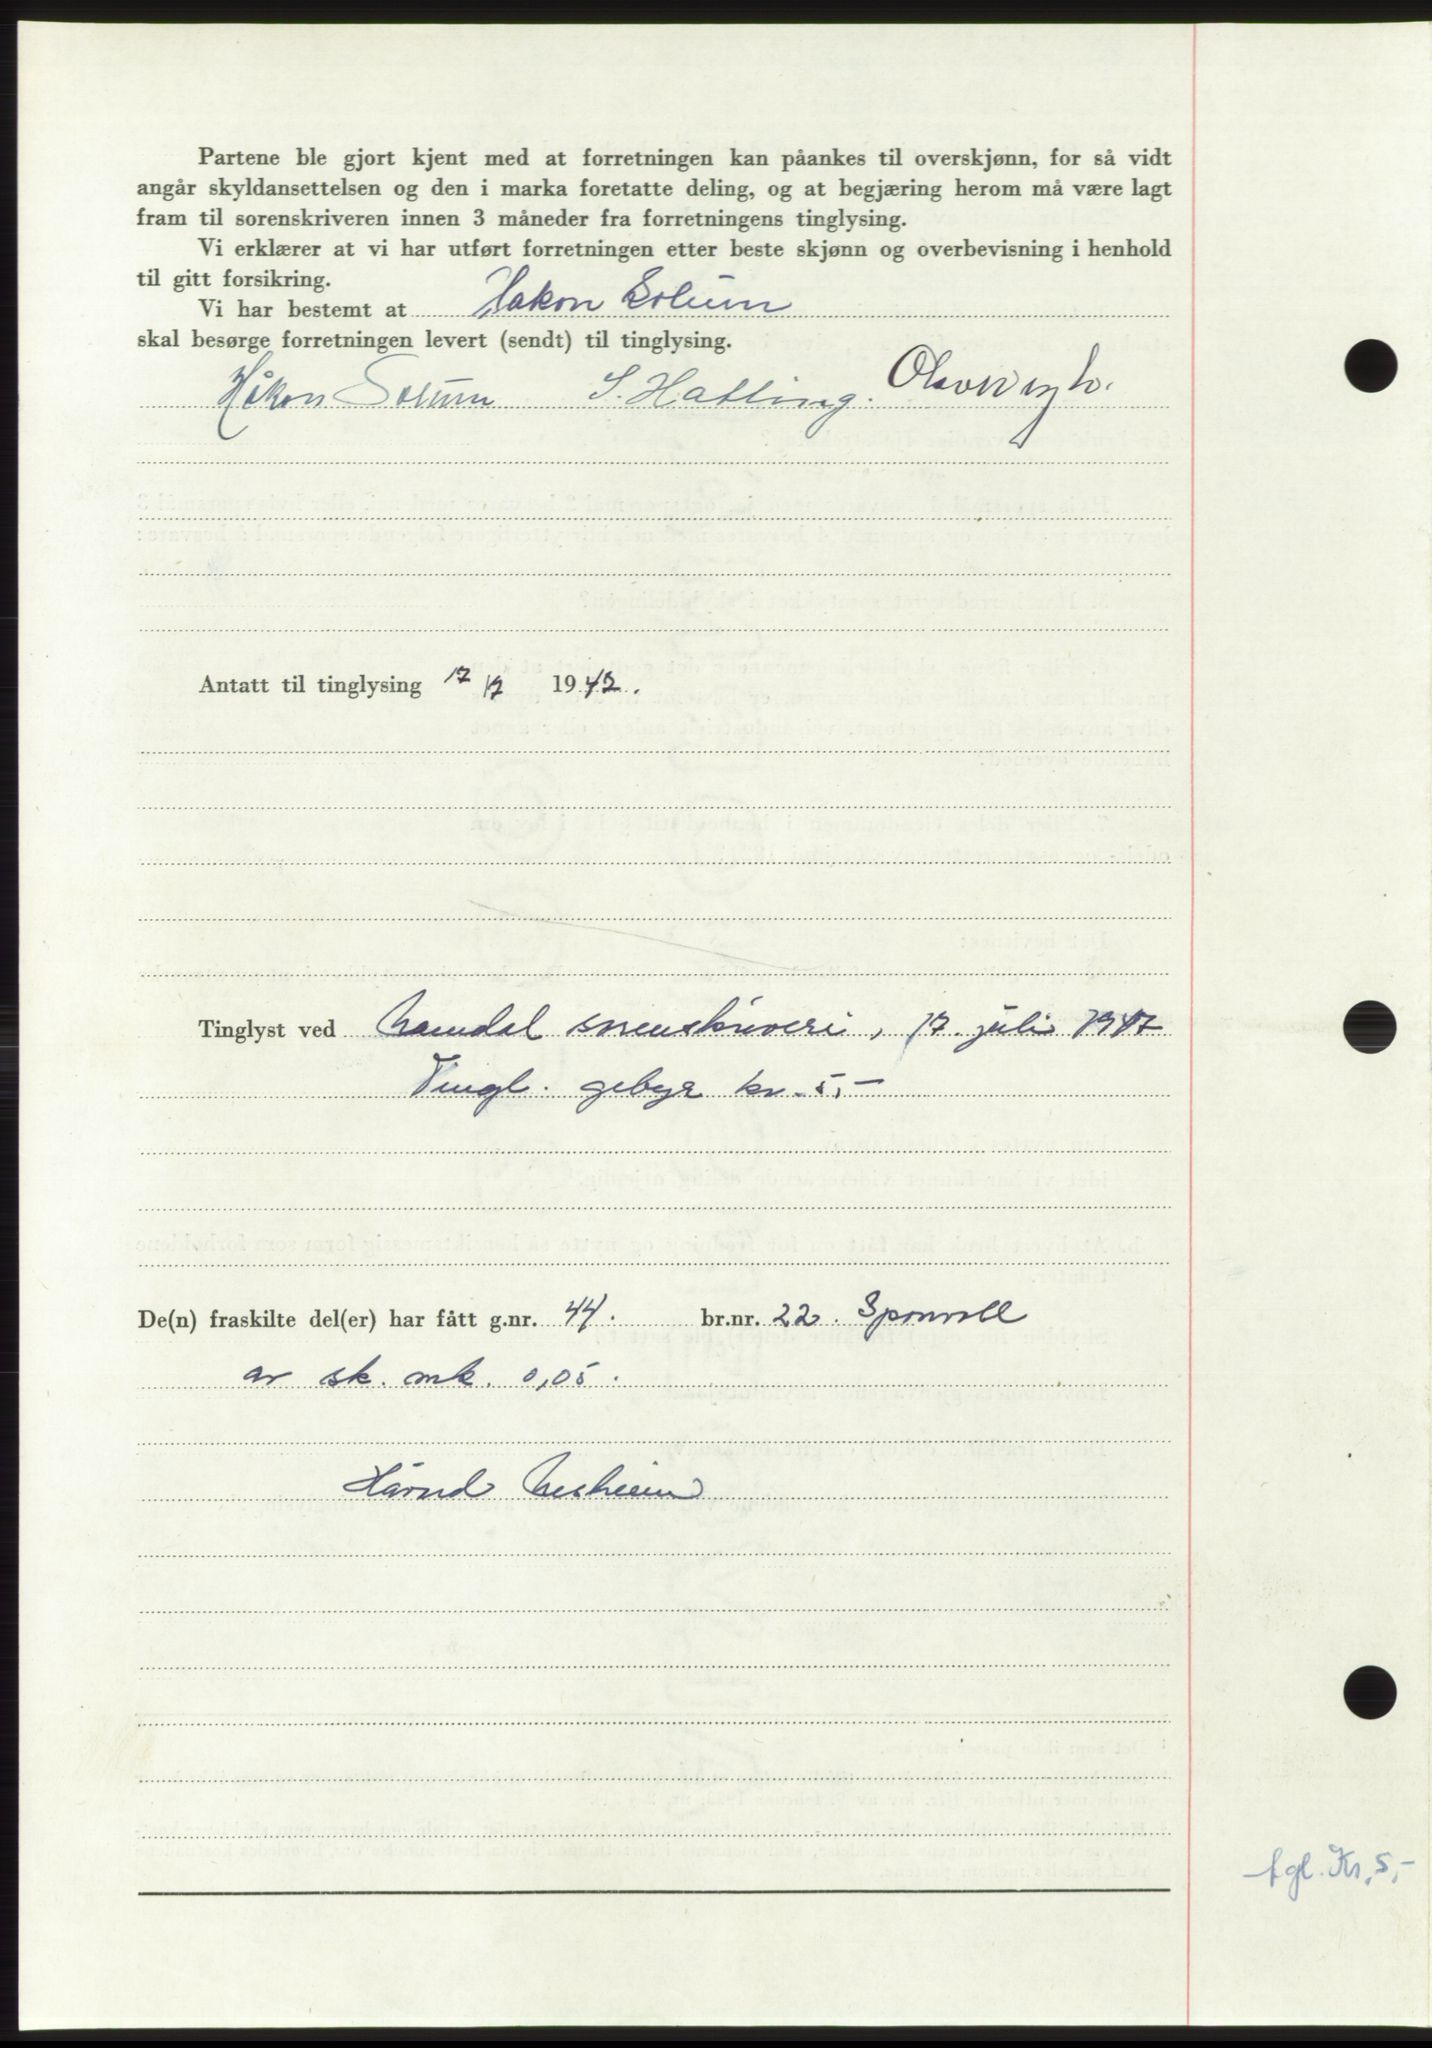 Partene ble gjort kjent med at forretningen kan påankes til overskjønn, for så vidt
angår skyldansettelsen og den i marka foretatte deling, og at begjæring herom må være lagt
fram til sorenskriveren innen 3 måneder fra forretningens tinglysing.
Vi erklærer at vi har utført forretningen etter beste skjønn og overbevisning i henhold
til gitt forsikring.
Vi har bestemt at Håkon Solum
skal besørge forretningen levert (sendt) til tinglysing.
Håkon Solum S. Hatling.
Antatt til tinglysing 17/7 1947.
Tinglyst ved Namdal sorenskriveri, 17. juli 1947
Tingl. gebyr kr. 5,-
De(n) fraskilte del(er) har fått g.nr. 44. br.nr. 22. Sponvoll
av sk. mk. 0,05.
Håvard Nesheim
tgl. Kr. 5,-